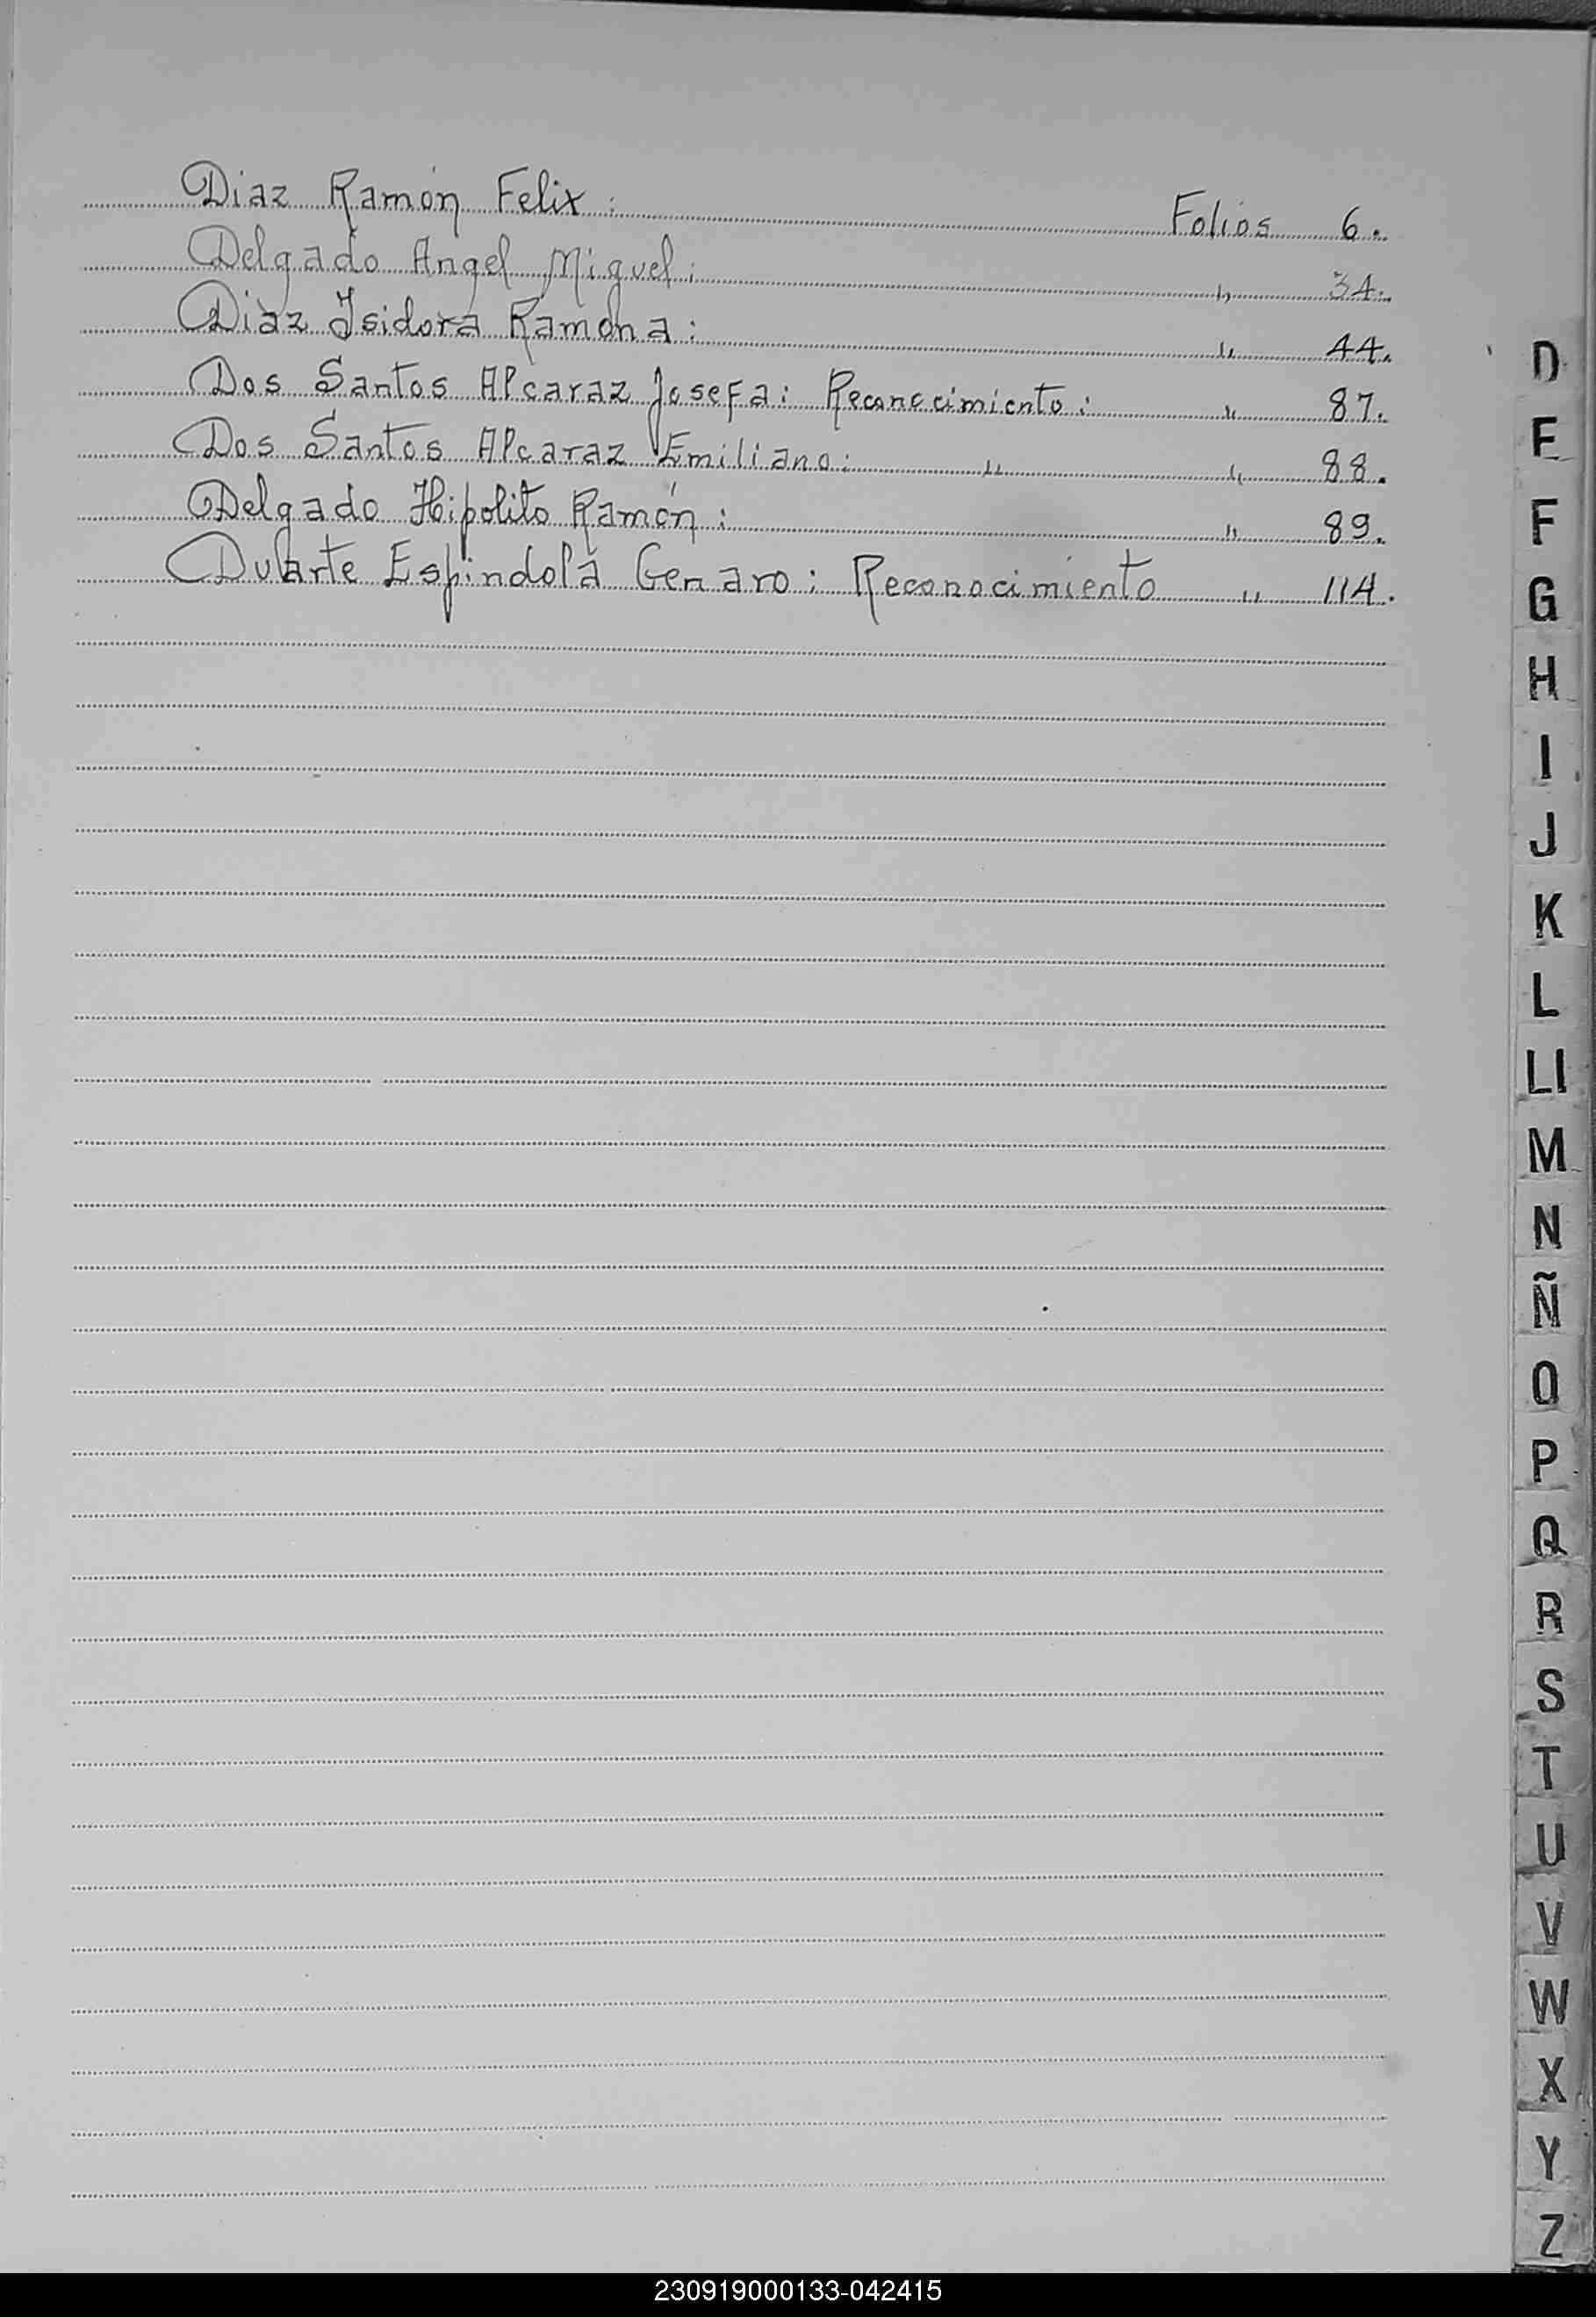 Diaz Ramón Felix: Folios 6.
Delgado Angel Miguel: " 34.
Diaz Isidora Ramona: " 44.
Dos Santos Alcaraz Josefa: Reconocimiento: " 87.
Dos Santos Alcaraz Emiliano: " " 88.
Delgado Hipolito Ramón: " 89.
Duarte Espindola Genaro: Reconocimiento " 114.
D
E
F
G
H
I
J
K
L
Ll
M
N
Ñ
O
P
Q
R
S
T
U
V
W
X
Y
Z
230919000133-042415